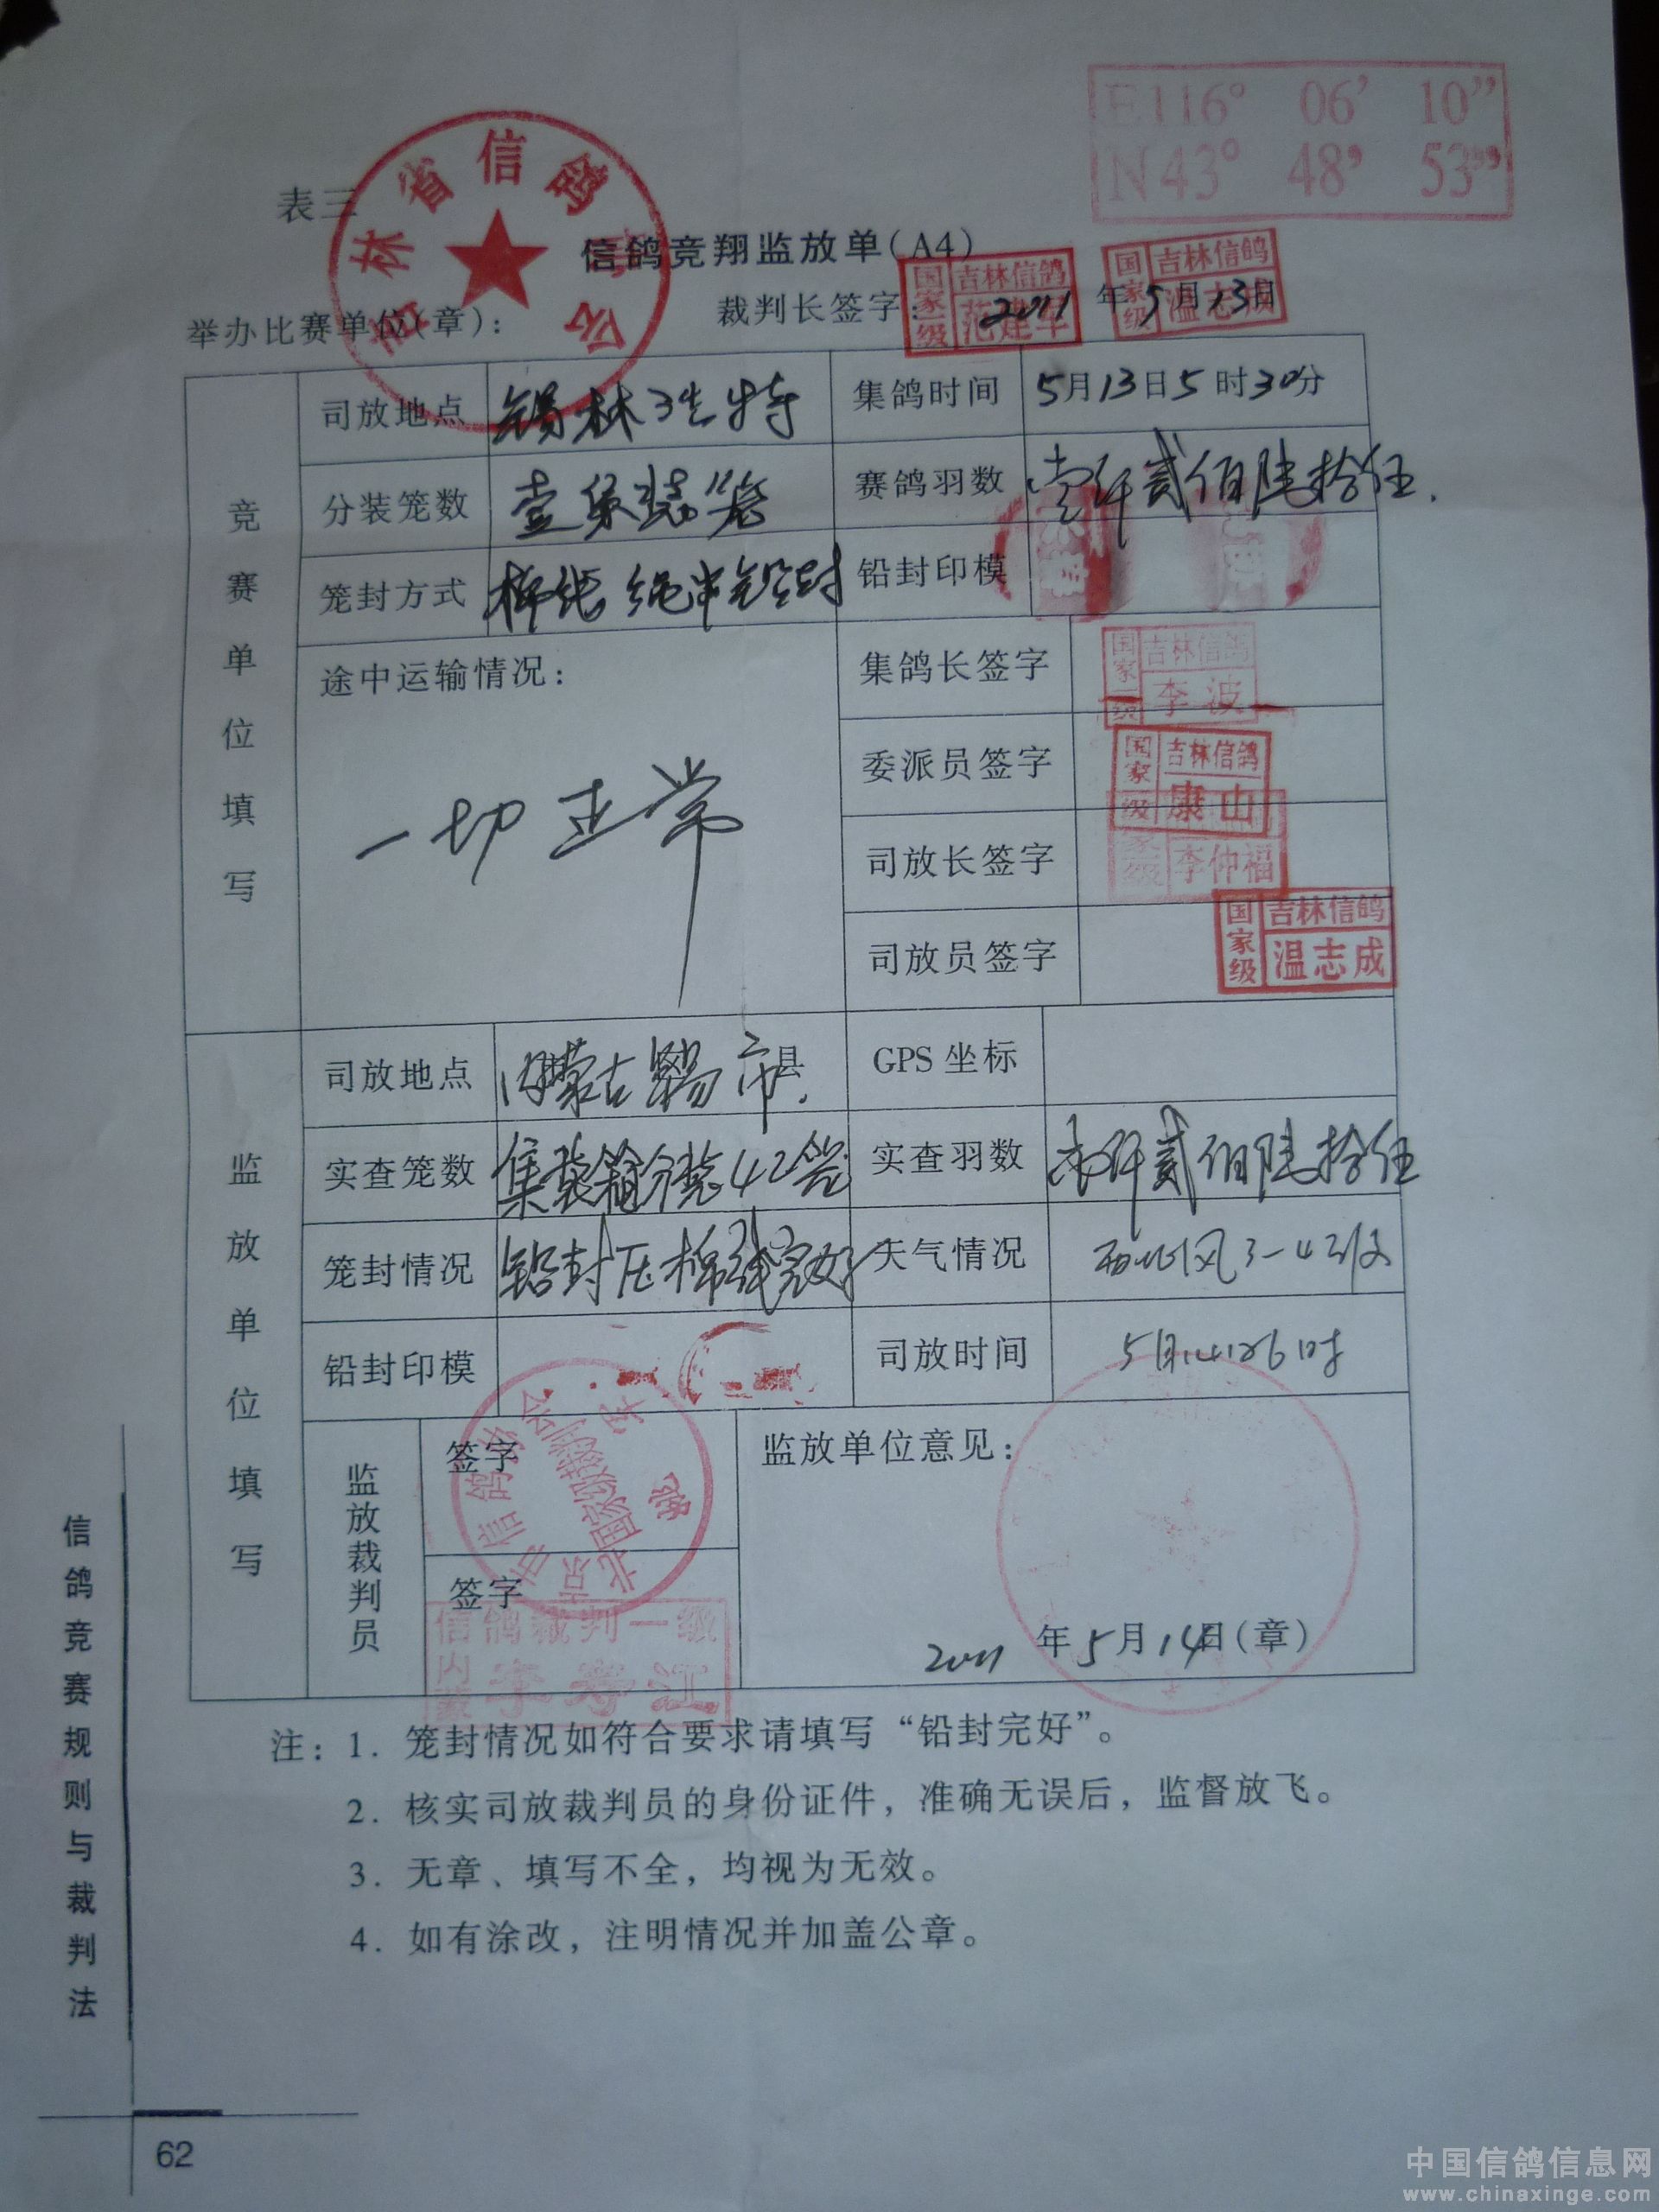 E116° 06' 10"
N43° 48' 53"
表三
林省信鸽
信鸽竞翔监放单(A4)
举办比赛单位(章): 裁判长签字: 2011年5月13日
国家级 吉林信鸽 范建军
国家级 吉林信鸽 温志成
竞赛单位填写
司放地点 锡林浩特 集鸽时间 5月13日5时30分
分装笼数 壹集装笼 赛鸽羽数 壹仟贰佰陆拾伍.
笼封方式 棉纸绳中铅封 铅封印模
途中运输情况: 集鸽长签字 国家级 吉林信鸽 李波
一切正常
委派员签字 国家级 吉林信鸽 康山
司放长签字 李仲福
司放员签字 国家级 吉林信鸽 温志成
监放单位填写
司放地点 内蒙古锡市县 GPS坐标
实查笼数 集装箱分装42笼 实查羽数 壹仟贰佰陆拾伍
笼封情况 铅封压棉线完好 天气情况 西北风3-4级
铅封印模 司放时间 5月14日6时
监放裁判员
签字 监放单位意见:
北京信鸽协会 国家级裁判
签字
信鸽裁判一级
内蒙 李寿江
2011年5月14日(章)
注: 1. 笼封情况如符合要求请填写“铅封完好”。
2. 核实司放裁判员的身份证件，准确无误后，监督放飞。
3. 无章、填写不全，均视为无效。
4. 如有涂改，注明情况并加盖公章。
信鸽竞赛规则与裁判法
62
中国信鸽信息网
www.chinaxinge.com